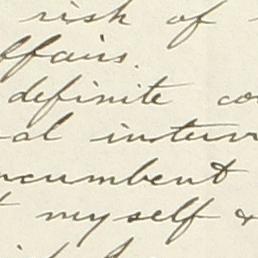 risk of
ffairs.
definite co
al interv
ncumbent
myself &